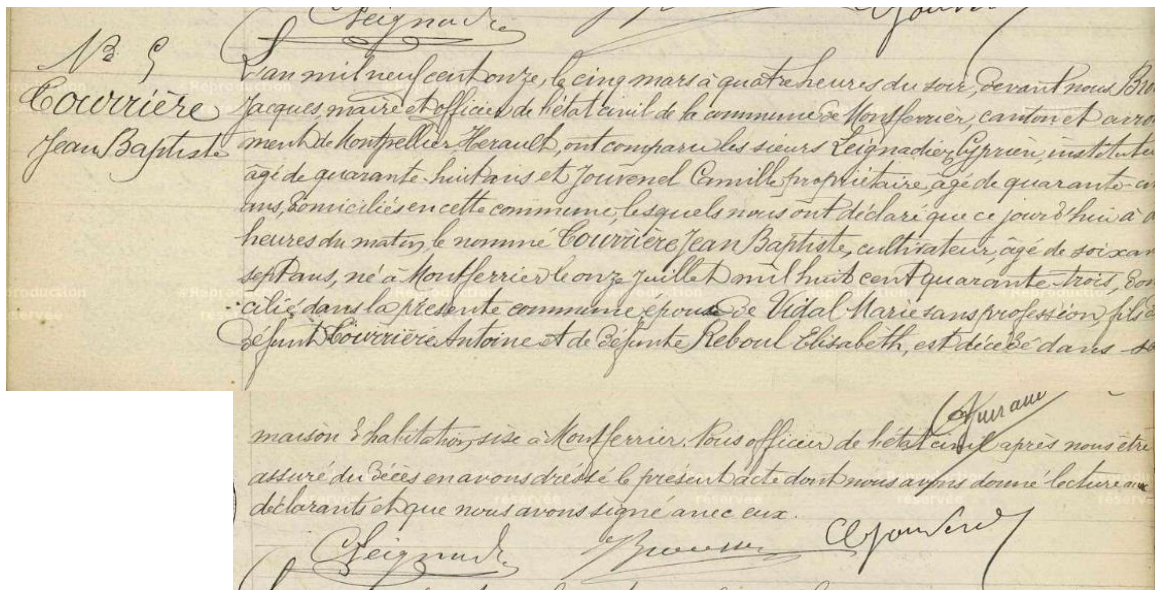 Leignadier
Nº 5
Courrière
Jean Baptiste
L'an mil neuf cent onze, le cinq mars à quatre heures du soir, devant nous
Jacques, maire et officier de l'état civil de la commune de Montferrier, canton et arron
ment de Montpellier Herault, ont comparu les sieurs Leignadier Cyprien, institute
âgé de quarante-huit ans et Jouvenel Camille propriétaire, âgé de quarante-cin
ans, domiciliés en cette commune, lesquels nous ont déclaré que ce jourd'hui à
heures du matin, le nommé Courrière Jean Baptiste, cultivateur, âgé de soixan
sept ans, né à Montferrier le onze juillet mil huit cent quarante-trois, dom
cilié dans la présente commune époux de Vidal Marie sans profession, fils d
défunt Courrière Antoine et de défunte Reboul Elisabeth, est décédé dans sa
maison d'habitation, sise à Montferrier. Nous officier de l'état civil après nous être
assuré du décès en avons dressé le présent acte dont nous avons donné lecture aux
déclarants et que nous avons signé avec eux.
Leignadier CJouvenel